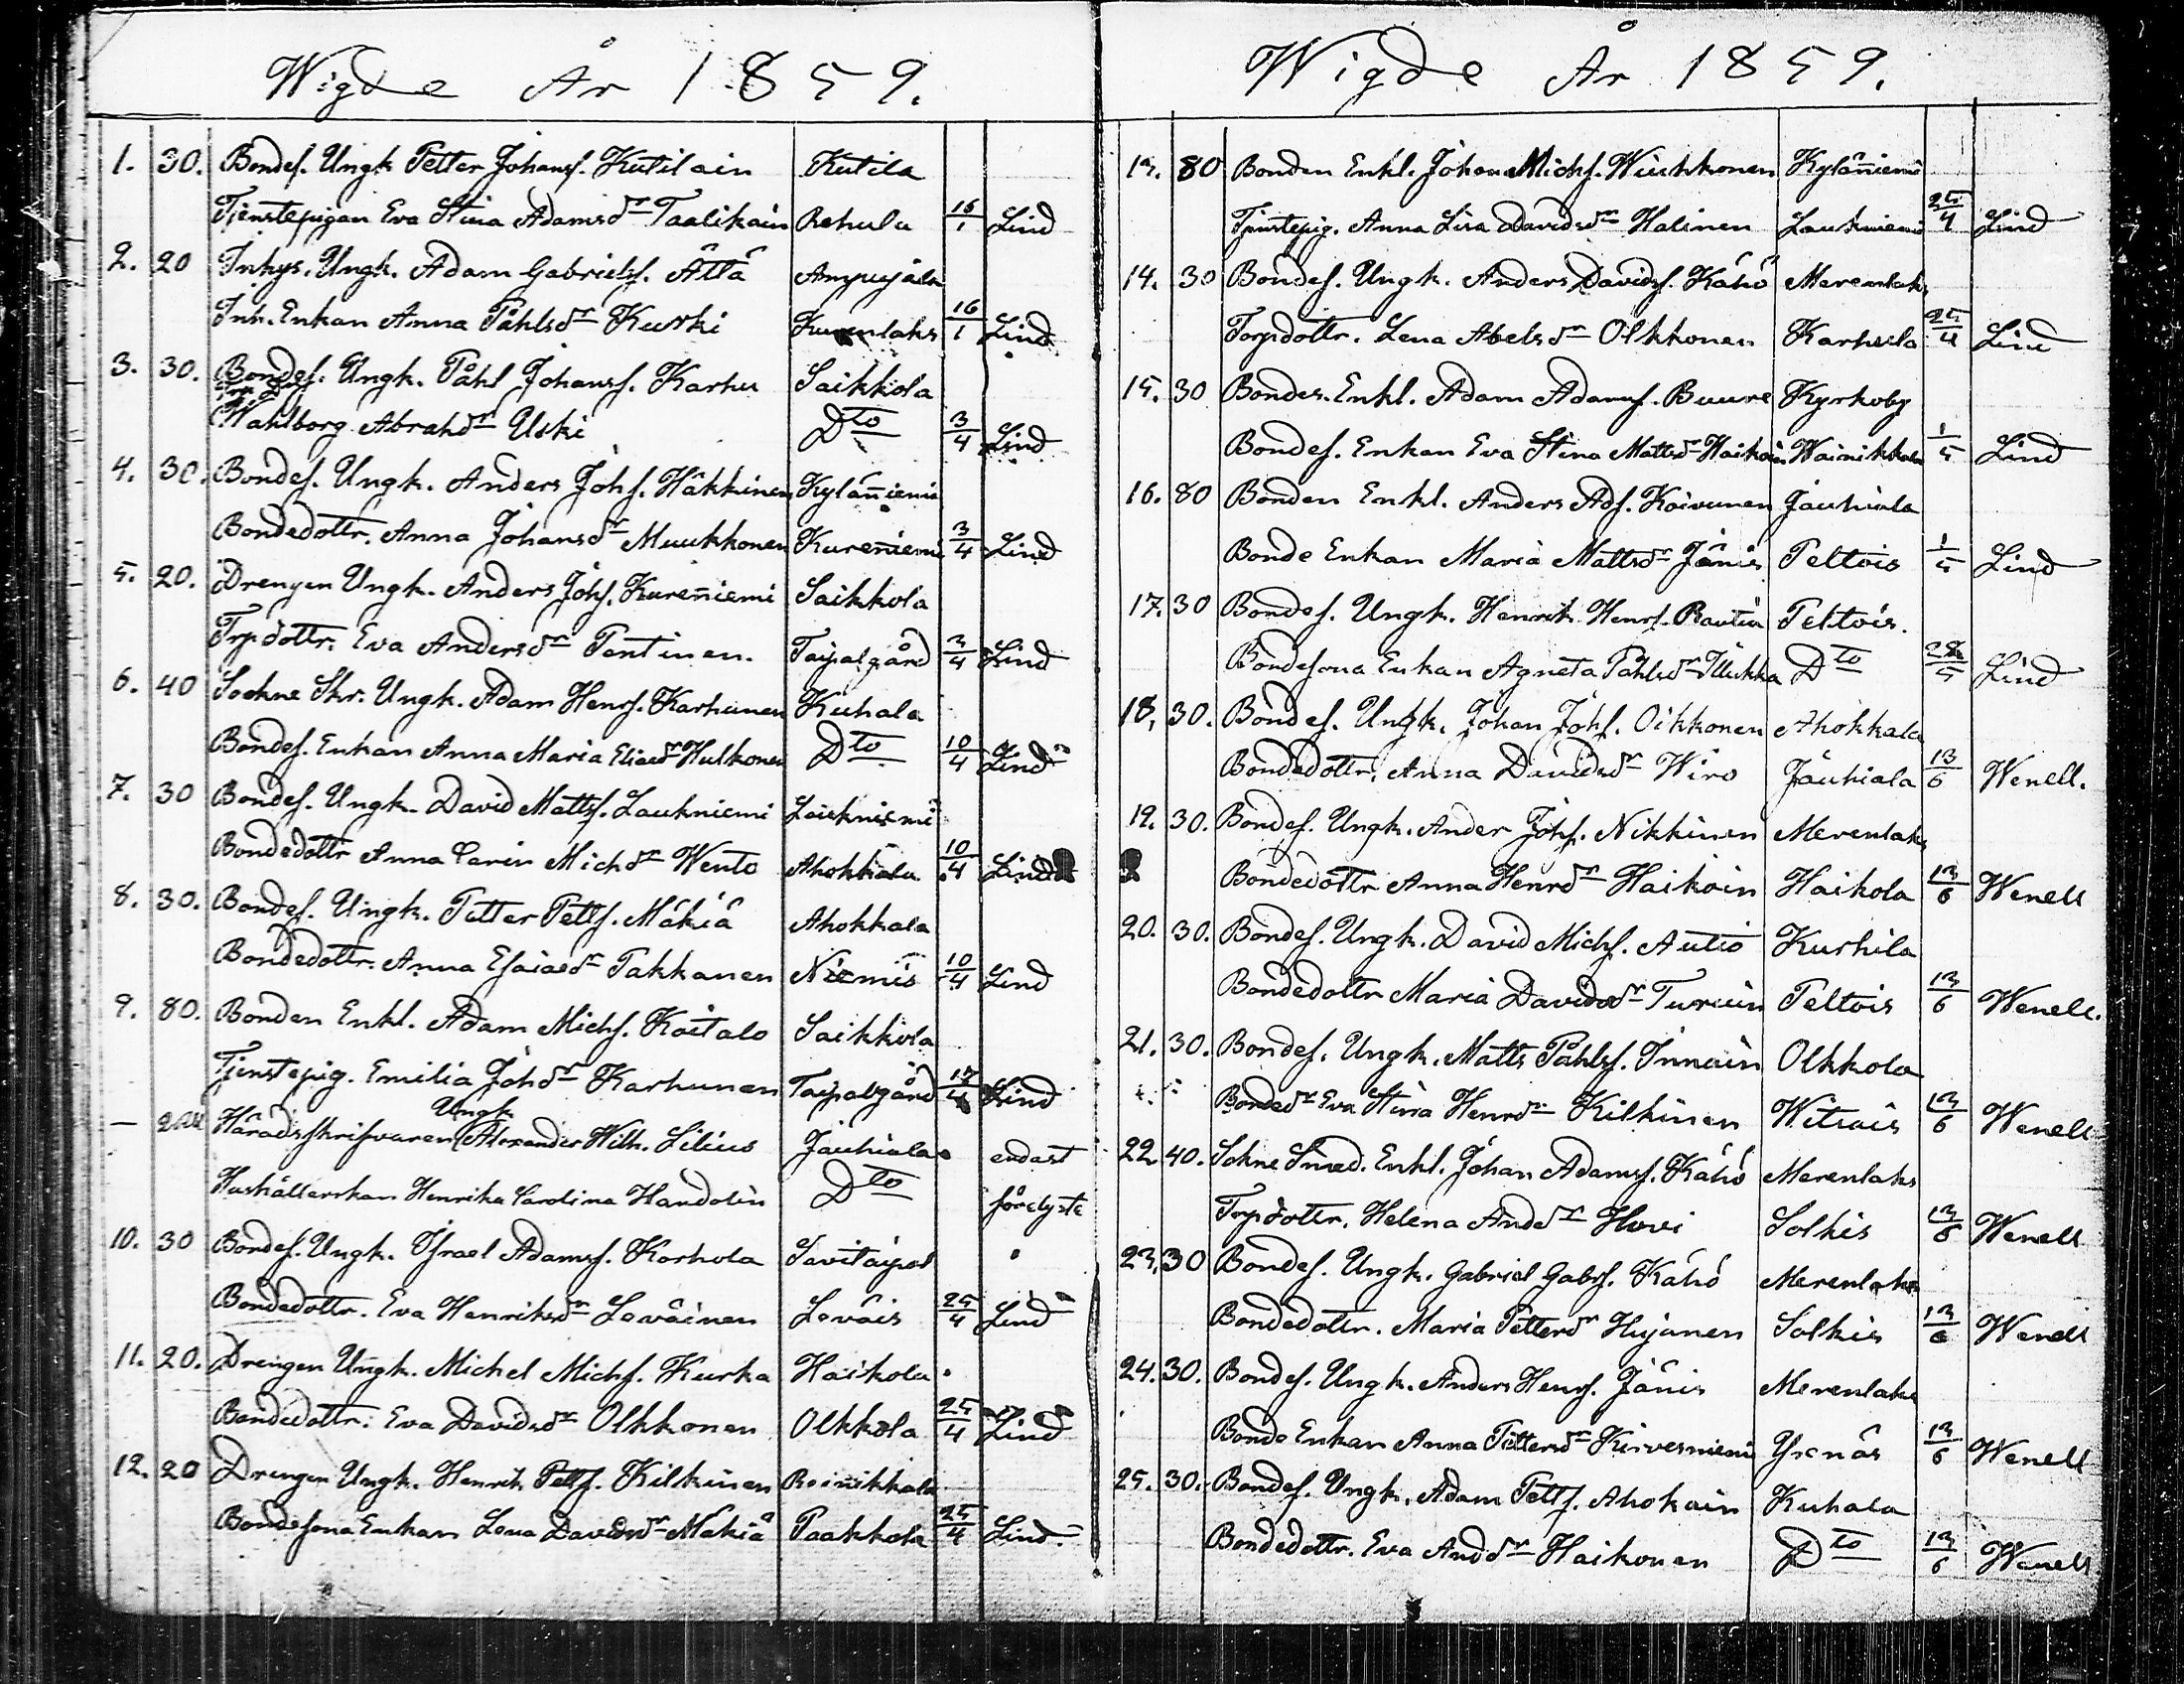 Wigde År 1859.
1. 30. Bondes. Ungk Petter Johanss. Kutilain Kutila
Tjenstepigan Eva Stina Adamsdr Taalikain Rehula 16/1 Lind
2. 20 Inhys. Ungk. Adam Gabrielss. Ättä
Inh. Enkan Anna Påhlsdr Kurki 16/1 Lind
3. 30. Bondes. Ungk. Påhl Johanss. Karhu Saikkola
Wahlborg Abrahdr Uski Dto 3/4 Lind
4. 30. Bondes. Ungk. Anders Johs. Häkkinen Kyläniemi
Bondedottr. Anna Johansdr Muukkonen Kureniemi 3/4 Lind
5. 20. Drengen Ungk. Anders Johs. Kureniemi Saikkola
Trpdottr. Eva Andersdr Pentinen. Taipalgård 3/4 Lind
6. 40 Sockne Skr. Ungk. Adam Henrs. Karhunen Kuhala
Bondes. Enkan Anna Maria Eliaedr Hulkonen Dto 10/4 Lind
7. 30 Bondes. Ungk. David Mattss. Laukniemi Laukniemi
Bondedottr Anna Carin Michdr Wento Ahokkala 10/4 Lind
8. 30. Bondes. Ungk. Petter Petts. Mäkiä Ahokkala
Bondedottr. Anna Esaiaedr Takkanen Niemis 10/4 Lind
9. 80. Bonden Enkl. Adam Michs. Koitalo Saikkola
Tjenstepig. Emilia Johdr Karhunen Taipalgård 17/4 Lind
— Häradsskrifvaren Ungk Alexander Wilh. Silius Jauhiala endast
Hushållerskan Henrika Carolina Handolin Dto förelyste
10. 30 Bondes. Ungk. Israel Adamss. Korhola Savitaipal
Bondedottr. Eva Henriksdr Leväinen Leväis 25/4 Lind
11. 20. Drengen Ungk. Michel Michs. Kurka Haikola
Bondedottr. Eva Davidsdr Olkkonen Olkkola 25/4 Lind
12. 20 Drengen Ungk. Henrik Petts. Kilkinen Roinikkala
Bondesona Enkan Lena Davidsdr Mäkiä Paakkola 25/4 Lind.
Wigde År 1859.
13. 80 Bonden Enkl. Johan Michs. Wiuhkonen Kyläniemi
Tjenstepig. Anna Lisa Davidsdr Halinen Laukniemi 25/4 Lind
14. 30 Bondes. Ungk. Anders Davidss. Kähö Merenlaks
Torpdottr. Lena Abelsdr Olkkonen Karhula 25/4 Lind
15. 30 Bondes. Enkl. Adam Adamss. Buure Kyrkoby
Bondes. Enkan Eva Stina Mattsdr Haikoin Wainikkala 1/5 Lind
16. 80 Bonden Enkl. Anders Ads. Koivunen Jauhiala
Bonde Enkan Maria Mattsdr Jänis Peltois 1/5 Lind
17. 30 Bondes. Ungk. Henrik Henrs. Rautia Peltois.
Bondesona Enkan Agneta Påhlsdr Dto Lind
18. 30. Bondes. Ungk. Johan Johs. Oikkonen Ahokkala
Bondedottr. Anna Davidsdr Wiro Jauhiala 13/6 Wenell.
19. 30. Bondes. Ungk. Ander Johs. Nikkinen Merenlaks
Bondedottr Anna Henrdr Haikoin Haikola 13/6 Wenell
20. 30. Bondes. Ungk. David Michs. Autio Kurhila
Bondedottr Maria Davidsdr Turuin Peltois 13/6 Wenell.
21. 30. Bondes. Ungk. Matts Påhlss. Innain Olkkola
Bondedr Eva Stina Henrdr Kilkinen Witsais 13/6 Wenell
22. 40. Sokne Smed. Enkl. Johan Adamss. Kähö Merenlaks
Trpdottr. Helena Anddr Hovi Solkis 13/6 Wenell
23. 30 Bondes. Ungk. Gabriel Gabrs. Kähö Merenlaks
Bondedottr. Maria Pettersdr Hujanen Solkis 13/6 Wenell
24. 30. Bondes. Ungk. Anders Henrs. Jänis Merenlaks
Bonde Enkan Anna Pettersdr Kirvesniemi Yxenäs 13/6 Wenell
25. 30. Bondes. Ungk. Adam Petts. Ahokain Kuhala
Bondedottr. Eva Anddr Haikonen Dto 13/6 Wenell